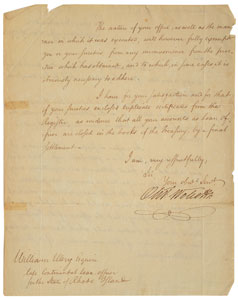 The nature of your office, as well as the man-
ner in which it was executed, will however fully exempt
you or your sureties from any inconvenience from the prac-
tice which has obtained, and to which, in your case, it is
obviously necessary to adhere.
I have for your satisfaction and in that
of your sureties enclosed duplicate certificates from the
Register, as evidence that all your accounts as loan of-
ficer are closed in the books of the Treasury by a final
Settlement.
I am, very respectfully,
Sir,
Your Obed. Servt.
Oliv. Wolcott
William Ellery Esquire
late Continental Loan officer
for the State of Rhode Island